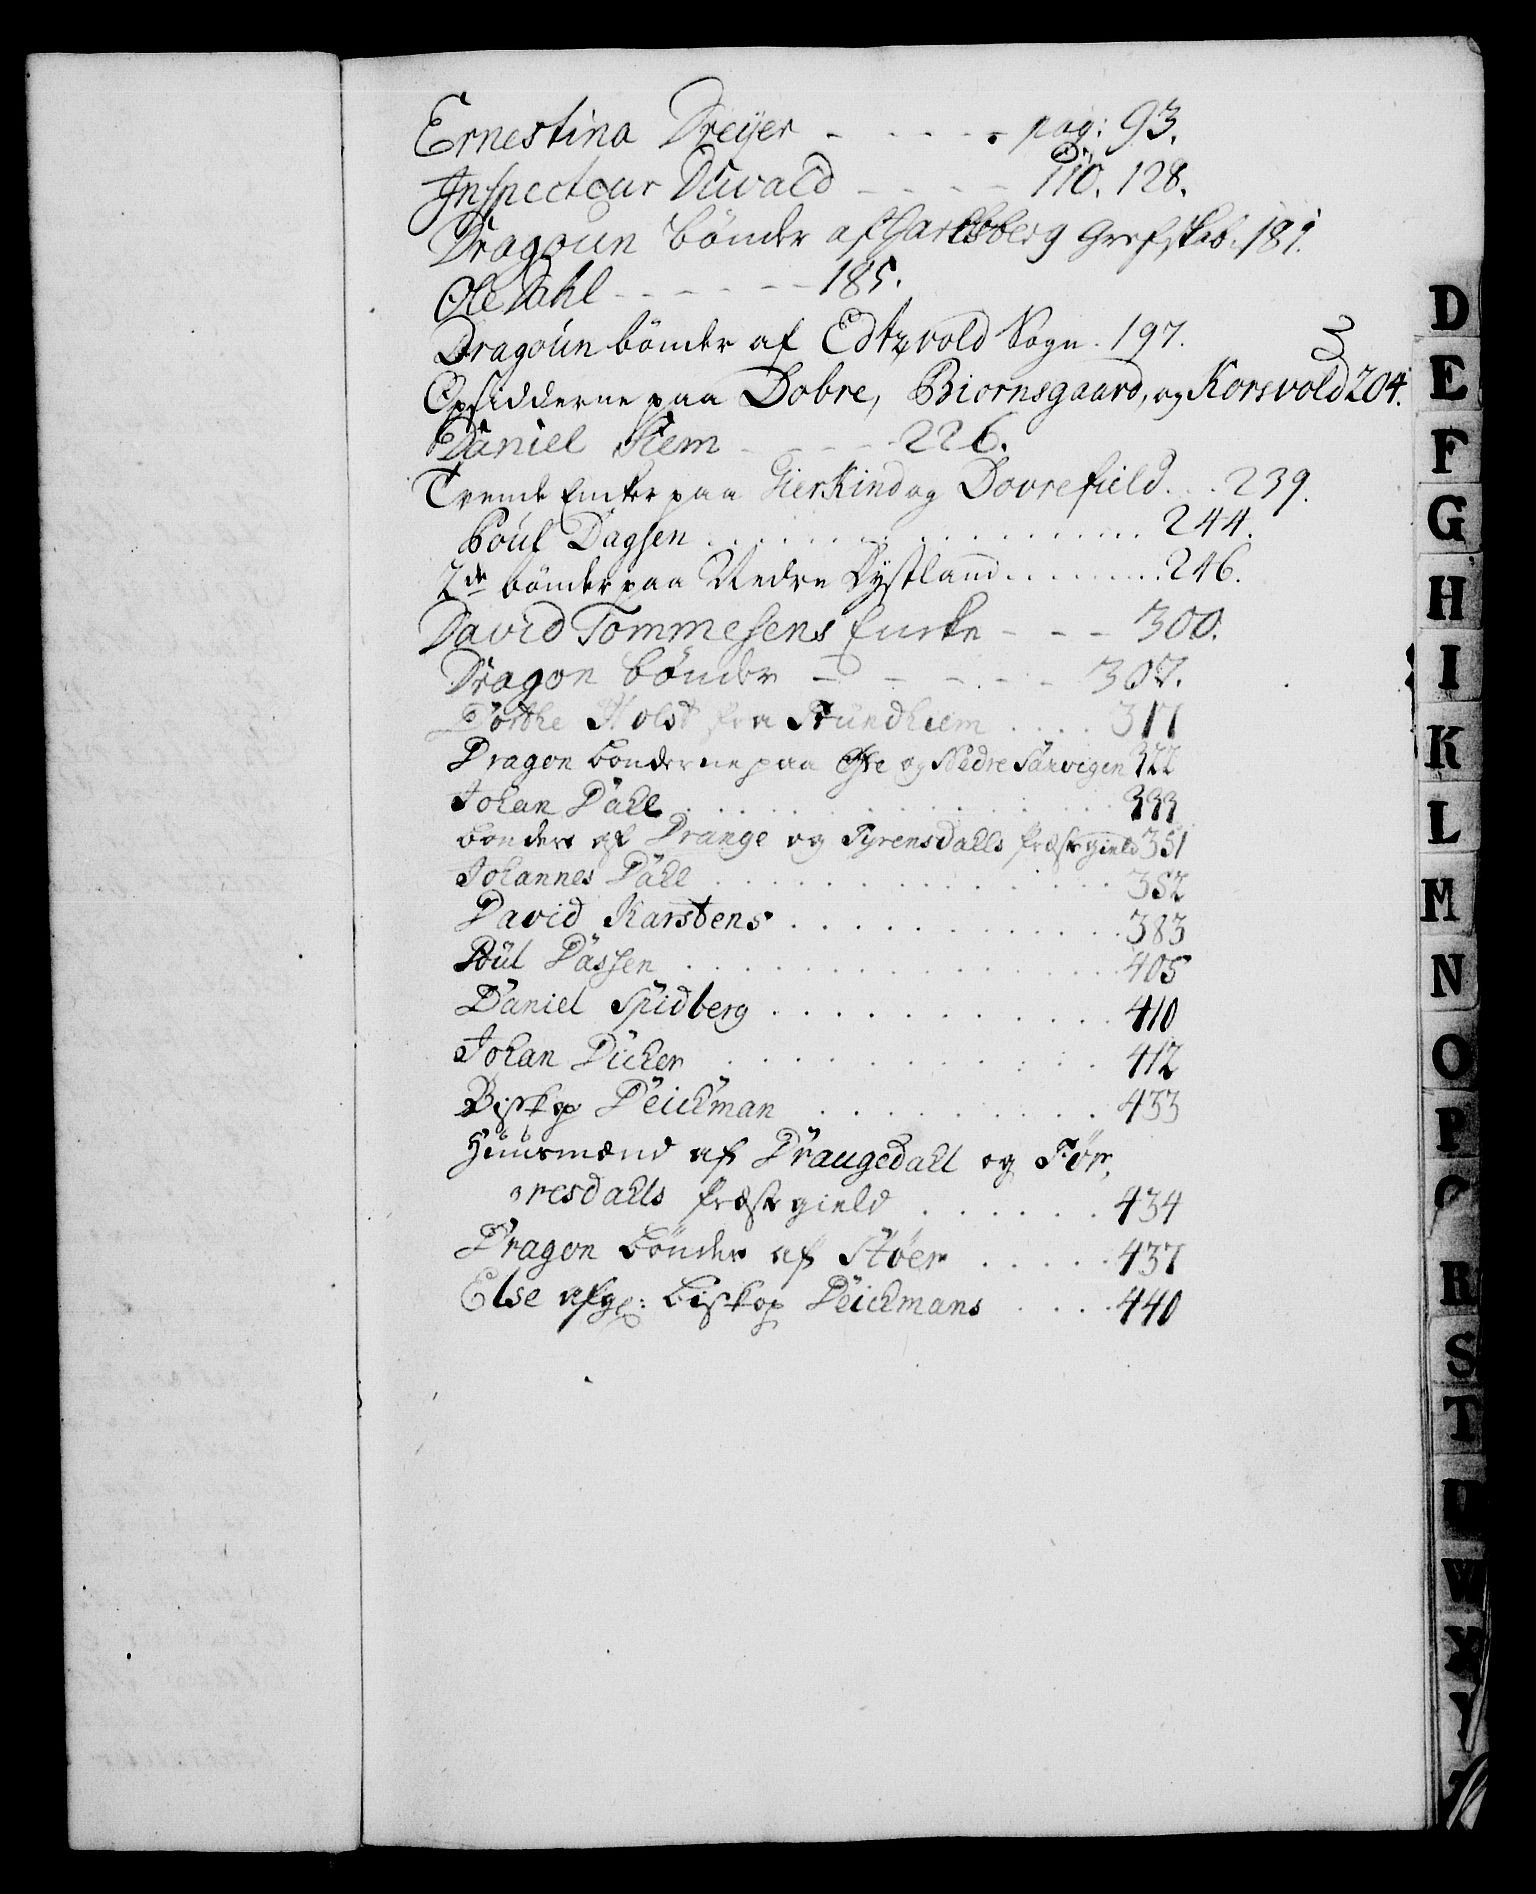 Ernestina Dreyer - - - - - pag: 93.
Inspecteur Duvald - - - - 110. 128.
D.
Dragoun bönder af Jarlsberg Grefskab. 181.
Ole Dahl - - - - - - 185.
Dragoún bönder af Edtzvold Sogn. 197.
Opsidderne paa Dobre, Biornsgaard, og Korsvold 204.
3
Daniel Kiem - - - - 226.
Trende Encker paa Hierkind og Dovrefield . . . 239.
Poúl Dagsen . . . . . . . . . . . . . . . . 244.
2de bönder paa Nedre Dystland . . . . . . . . 246.
David Tommesens Encke - - - 300.
Dragon bönder - - - - - - 307.
Dorthe Holst fra Trundhiem . . . . 317
Dragon bonderne paa Øfre og Nedre Sarvigen 322
Johan Dahl . . . . . . . . . . . . . . 333
bonder af Drange og Tyrensdalls Præstegield 351
Johannes Dahl . . . . . . . . . . . . . 352
David Karstens . . . . . . . . . . . . 383
Poúl Dassen . . . . . . . . . . . . . . 405
Daniel Spidberg . . . . . . . . . . . . 410
Johan Dicker . . . . . . . . . . . . 412
Biskop Deichman . . . . . . . . . . 433
Huusmænd af Draugedall og Før,
resdalls Præstegield . . . . . . 434
Dragon bönder af Støer . . . . . 437
Else afg: Biskop Deichmans . . . . 440
D
E
F
G
H
I
K
L
M
N
O
P
Q
R
S
T
U
W
X
Y